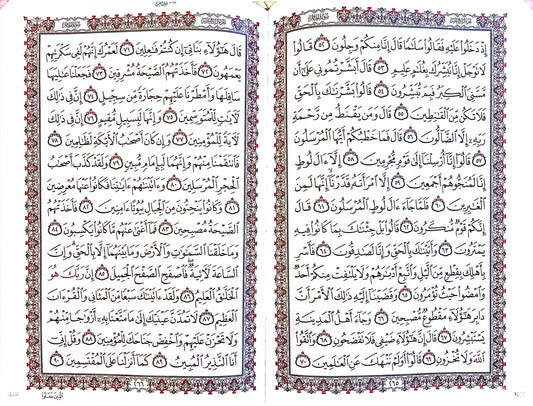 إِذْ دَخَلُوا۟ عَلَيْهِ فَقَالُوا۟ سَلَٰمًا قَالَ إِنَّا مِنكُمْ وَجِلُونَ ٥٢ قَالُوا۟
لَا تَوْجَلْ إِنَّا نُبَشِّرُكَ بِغُلَٰمٍ عَلِيمٍ ٥٣ قَالَ أَبَشَّرْتُمُونِى عَلَىٰٓ أَن
مَّسَّنِىَ ٱلْكِبَرُ فَبِمَ تُبَشِّرُونَ ٥٤ قَالُوا۟ بَشَّرْنَٰكَ بِٱلْحَقِّ
فَلَا تَكُن مِّنَ ٱلْقَٰنِطِينَ ٥٥ قَالَ وَمَن يَقْنَطُ مِن رَّحْمَةِ
رَبِّهِۦٓ إِلَّا ٱلضَّآلُّونَ ٥٦ قَالَ فَمَا خَطْبُكُمْ أَيُّهَا ٱلْمُرْسَلُونَ
٥٧ قَالُوٓا۟ إِنَّآ أُرْسِلْنَآ إِلَىٰ قَوْمٍ مُّجْرِمِينَ ٥٨ إِلَّآ ءَالَ لُوطٍ
إِنَّا لَمُنَجُّوهُمْ أَجْمَعِينَ ٥٩ إِلَّا ٱمْرَأَتَهُۥ قَدَّرْنَآ إِنَّهَا لَمِنَ
ٱلْغَٰبِرِينَ ٦٠ فَلَمَّا جَآءَ ءَالَ لُوطٍ ٱلْمُرْسَلُونَ ٦١ قَالَ
إِنَّكُمْ قَوْمٌ مُّنكَرُونَ ٦٢ قَالُوا۟ بَلْ جِئْنَٰكَ بِمَا كَانُوا۟ فِيهِ
يَمْتَرُونَ ٦٣ وَأَتَيْنَٰكَ بِٱلْحَقِّ وَإِنَّا لَصَٰدِقُونَ ٦٤ فَأَسْرِ
بِأَهْلِكَ بِقِطْعٍ مِّنَ ٱلَّيْلِ وَٱتَّبِعْ أَدْبَٰرَهُمْ وَلَا يَلْتَفِتْ مِنكُمْ أَحَدٌ
وَٱمْضُوا۟ حَيْثُ تُؤْمَرُونَ ٦٥ وَقَضَيْنَآ إِلَيْهِ ذَٰلِكَ ٱلْأَمْرَ أَنَّ
دَابِرَ هَٰٓؤُلَآءِ مَقْطُوعٌ مُّصْبِحِينَ ٦٦ وَجَآءَ أَهْلُ ٱلْمَدِينَةِ
يَسْتَبْشِرُونَ ٦٧ قَالَ إِنَّ هَٰٓؤُلَآءِ ضَيْفِى فَلَا تَفْضَحُونِ ٦٨ وَٱتَّقُوا۟
ٱللَّهَ وَلَا تُخْزُونِ ٦٩ قَالُوٓا۟ أَوَلَمْ نَنْهَكَ عَنِ ٱلْعَٰلَمِينَ ٧٠
٢٦٥
قَالَ هَٰٓؤُلَآءِ بَنَاتِىٓ إِن كُنتُمْ فَٰعِلِينَ ٧١ لَعَمْرُكَ إِنَّهُمْ لَفِى سَكْرَتِهِمْ
يَعْمَهُونَ ٧٢ فَأَخَذَتْهُمُ ٱلصَّيْحَةُ مُشْرِقِينَ ٧٣ فَجَعَلْنَا عَٰلِيَهَا
سَافِلَهَا وَأَمْطَرْنَا عَلَيْهِمْ حِجَارَةً مِّن سِجِّيلٍ ٧٤ إِنَّ فِى ذَٰلِكَ
لَءَايَٰتٍ لِّلْمُتَوَسِّمِينَ ٧٥ وَإِنَّهَا لَبِسَبِيلٍ مُّقِيمٍ ٧٦ إِنَّ فِى ذَٰلِكَ
لَءَايَةً لِّلْمُؤْمِنِينَ ٧٧ وَإِن كَانَ أَصْحَٰبُ ٱلْأَيْكَةِ لَظَٰلِمِينَ ٧٨
فَٱنتَقَمْنَا مِنْهُمْ وَإِنَّهُمَا لَبِإِمَامٍ مُّبِينٍ ٧٩ وَلَقَدْ كَذَّبَ أَصْحَٰبُ
ٱلْحِجْرِ ٱلْمُرْسَلِينَ ٨٠ وَءَاتَيْنَٰهُمْ ءَايَٰتِنَا فَكَانُوا۟ عَنْهَا مُعْرِضِينَ
٨١ وَكَانُوا۟ يَنْحِتُونَ مِنَ ٱلْجِبَالِ بُيُوتًا ءَامِنِينَ ٨٢ فَأَخَذَتْهُمُ
ٱلصَّيْحَةُ مُصْبِحِينَ ٨٣ فَمَآ أَغْنَىٰ عَنْهُم مَّا كَانُوا۟ يَكْسِبُونَ ٨٤
وَمَا خَلَقْنَا ٱلسَّمَٰوَٰتِ وَٱلْأَرْضَ وَمَا بَيْنَهُمَآ إِلَّا بِٱلْحَقِّ وَإِنَّ
ٱلسَّاعَةَ لَءَاتِيَةٌ فَٱصْفَحِ ٱلصَّفْحَ ٱلْجَمِيلَ ٨٥ إِنَّ رَبَّكَ هُوَ
ٱلْخَلَّٰقُ ٱلْعَلِيمُ ٨٦ وَلَقَدْ ءَاتَيْنَٰكَ سَبْعًا مِّنَ ٱلْمَثَانِى وَٱلْقُرْءَانَ
ٱلْعَظِيمَ ٨٧ لَا تَمُدَّنَّ عَيْنَيْكَ إِلَىٰ مَا مَتَّعْنَا بِهِۦٓ أَزْوَٰجًا مِّنْهُمْ
وَلَا تَحْزَنْ عَلَيْهِمْ وَٱخْفِضْ جَنَاحَكَ لِلْمُؤْمِنِينَ ٨٨ وَقُلْ إِنِّىٓ
أَنَا ٱلنَّذِيرُ ٱلْمُبِينُ ٨٩ كَمَآ أَنزَلْنَا عَلَى ٱلْمُقْتَسِمِينَ ٩٠
٢٦٦